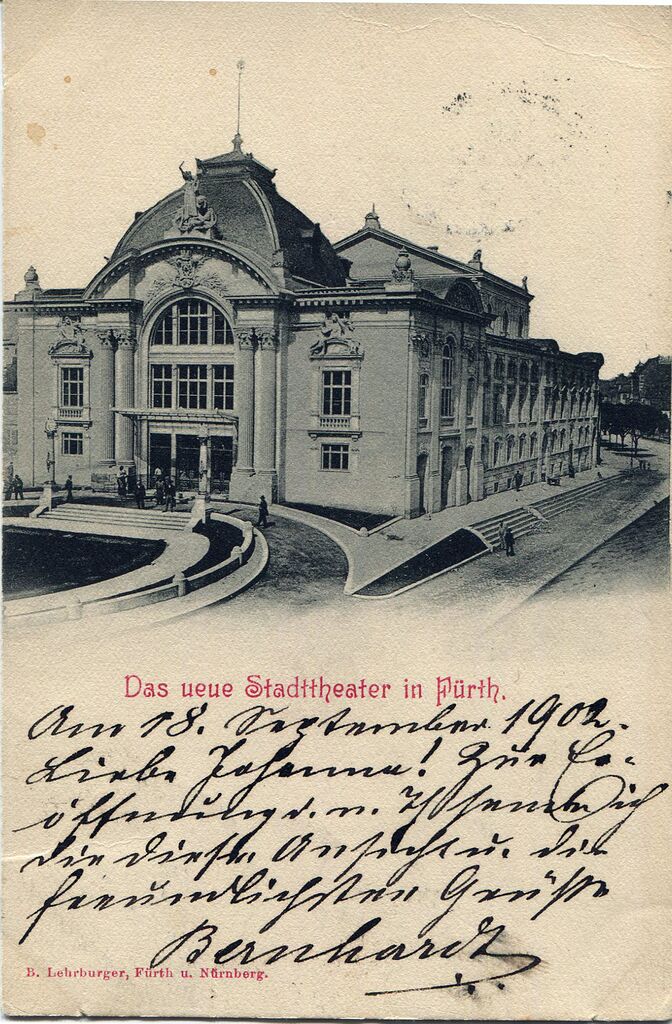 Das neue Stadttheater in Fürth.
Am 18. September 1902.
Liebe Johanna! Zur Er-
öffnung d. n. Th. sende ich
die diese Ansicht u. die
freundlichsten Grüße
Bernhardt
B. Lehrburger, Fürth u. Nürnberg.